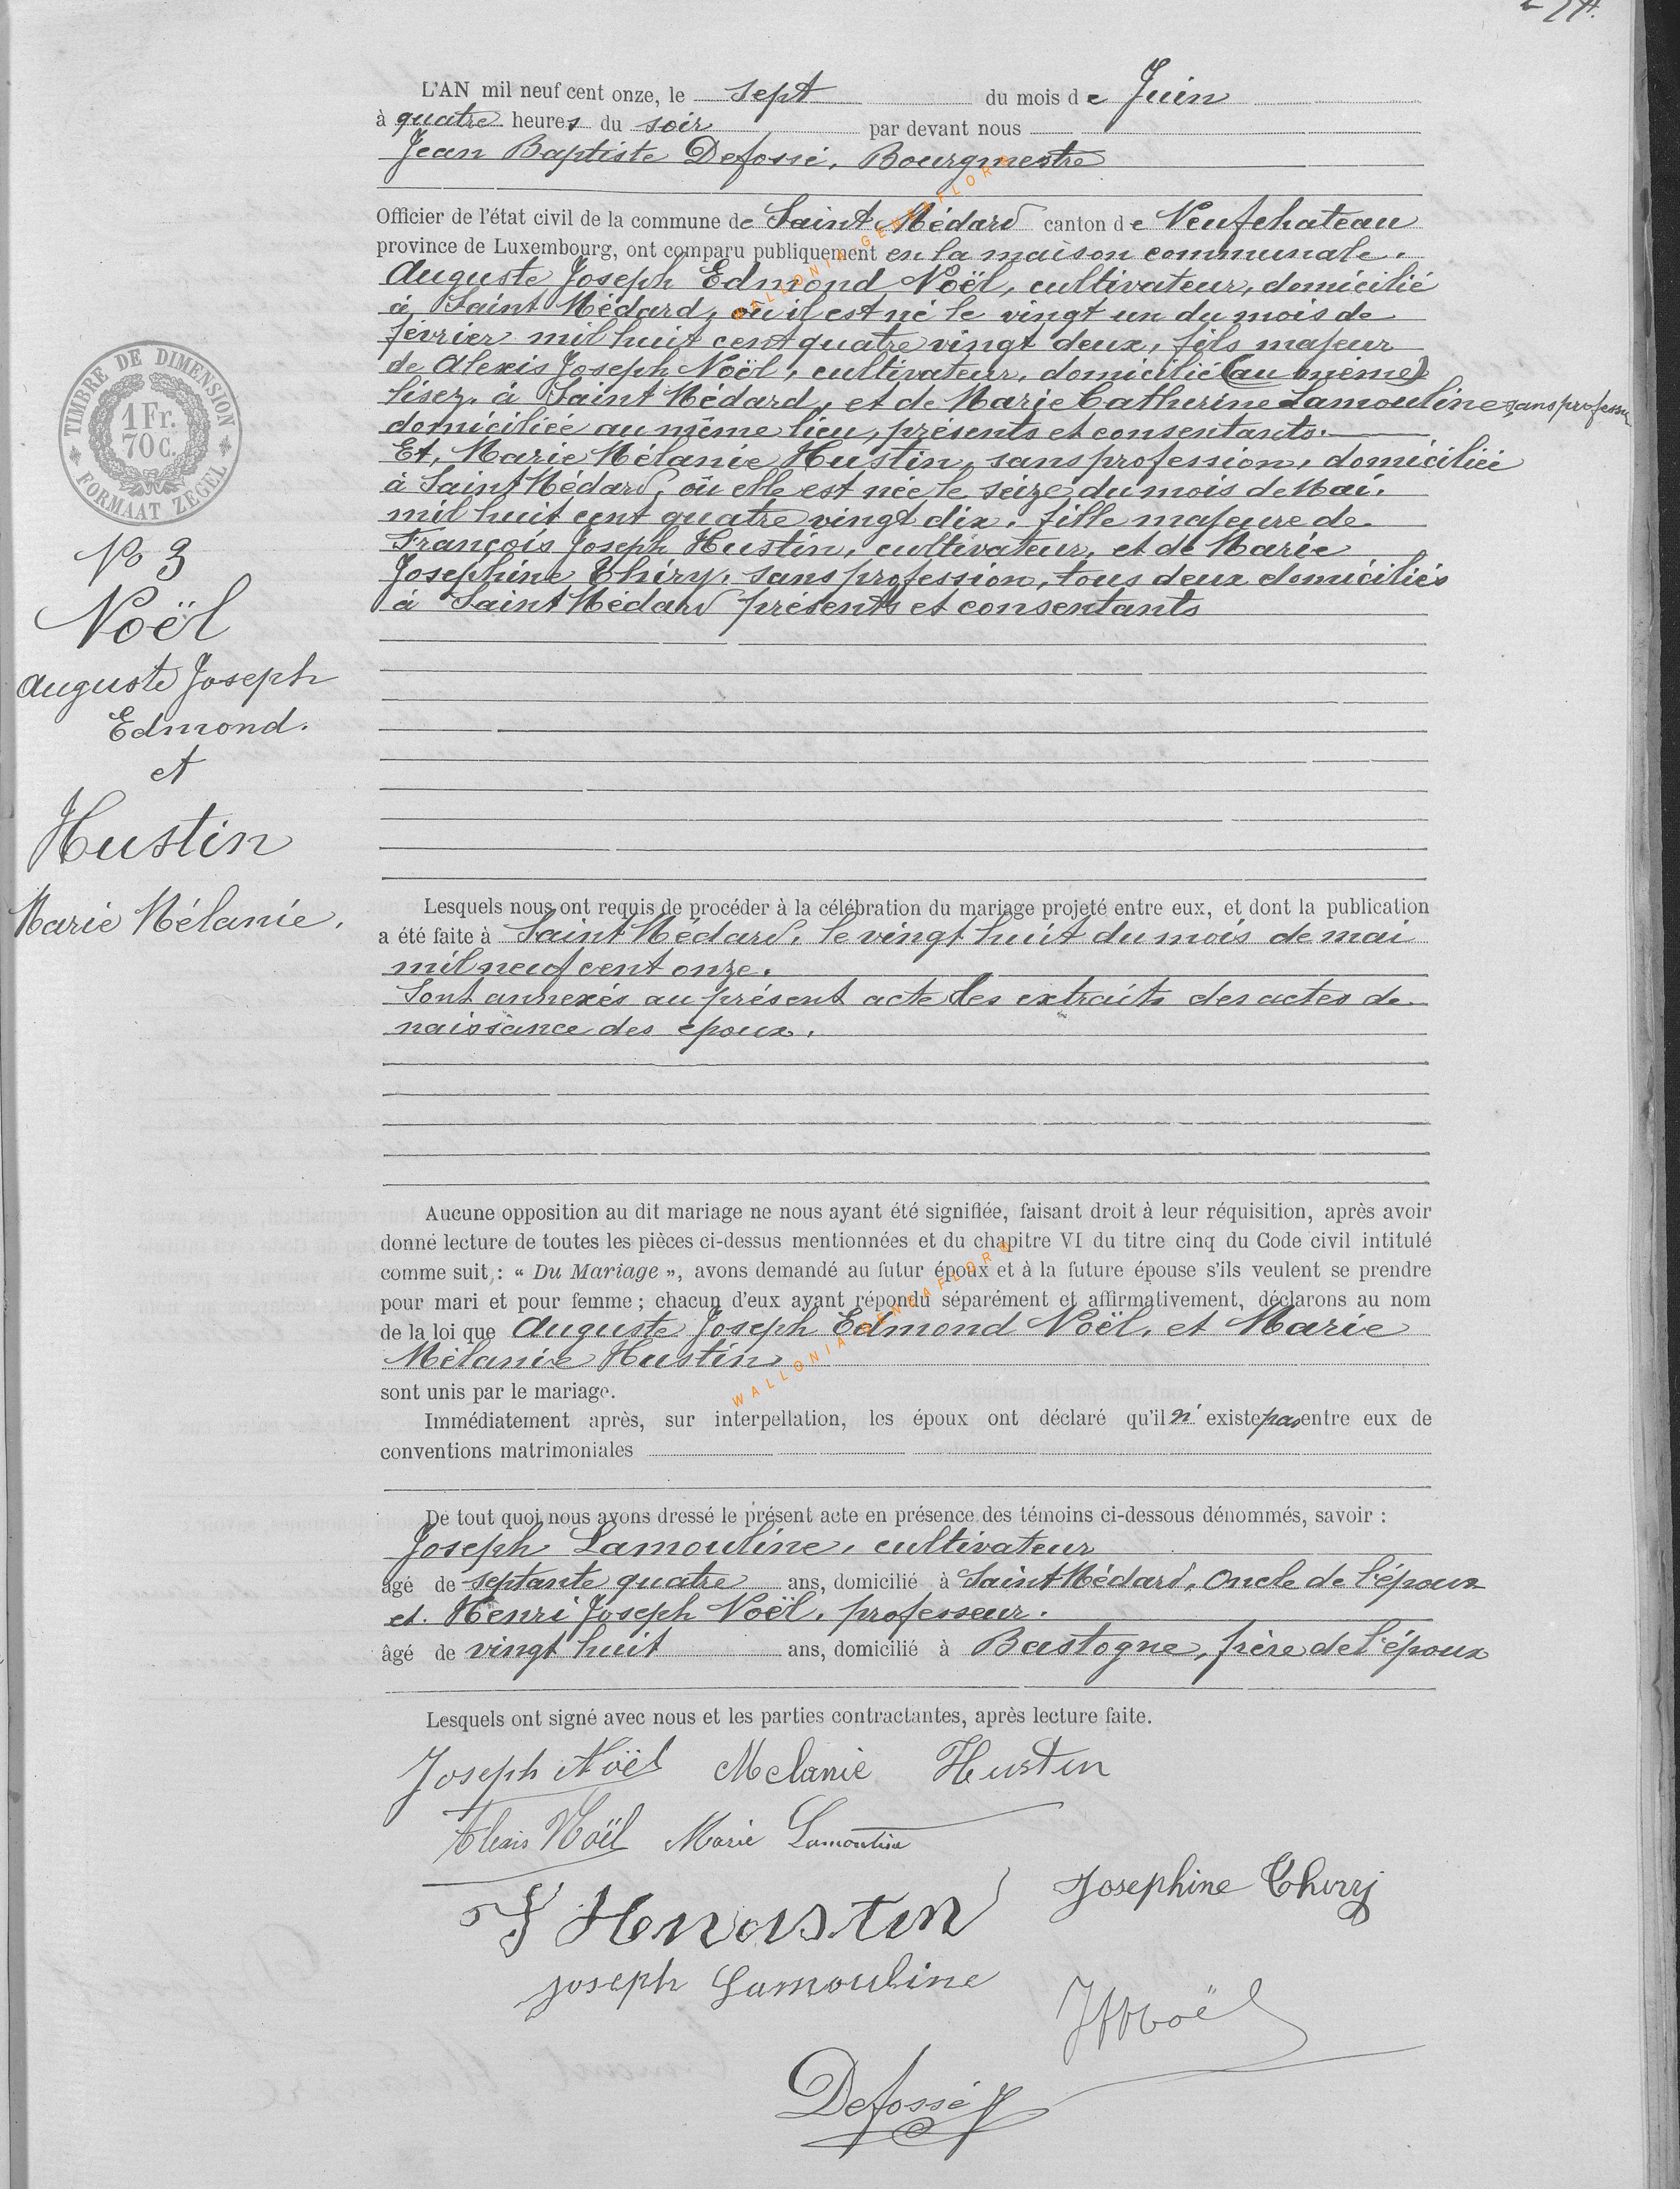 L'AN mil neuf cent onze, le sept du mois de Juin
à quatre heures du soir par devant nous
Jean Baptiste Defossé, Bourgmestre
Officier de l'état civil de la commune de Saint Médard canton de Neufchateau
province de Luxembourg, ont comparu publiquement en la maison communale.
Auguste Joseph Edmond Noël, cultivateur, domicilié
à Saint Médard, où il est né le vingt un du mois de
février mil huit cent quatre vingt deux, fils majeur
de Alexis Joseph Noël, cultivateur, domicilié (au même)
lisez, à Saint Médard, et de Marie Catherine Lamouline, sans profession
domiciliée au même lieu, présents et consentants.
Et, Marie Mélanie Hustin, sans profession, domiciliée
à Saint Médard, où elle est née le seize du mois de Mai.
mil huit cent quatre vingt dix, fille majeure de
François Joseph Hustin, cultivateur, et de Marie
Josephine Thiry, sans profession, tous deux domiciliés
à Saint Médard présents et consentants
TIMBRE DE DIMENSION
1 Fr.
70 c.
FORMAAT ZEGEL
No 3
Noël
Auguste Joseph
Edmond.
et
Hustin
Marie Mélanie.
Lesquels nous ont requis de procéder à la célébration du mariage projeté entre eux, et dont la publication
a été faite à Saint Médard, le vingt huit du mois de mai
mil neuf cent onze.
Sont annexés au présent acte les extraits des actes de
naissance des epoux.
Aucune opposition au dit mariage ne nous ayant été signifiée, faisant droit à leur réquisition, après avoir
donné lecture de toutes les pièces ci-dessus mentionnées et du chapitre VI du titre cinq du Code civil intitulé
comme suit : « Du Mariage », avons demandé au futur époux et à la future épouse s'ils veulent se prendre
pour mari et pour femme ; chacun d'eux ayant répondu séparément et affirmativement, déclarons au nom
de la loi que Auguste Joseph Edmond Noël, et Marie
Mélanie Hustin
sont unis par le mariage.
Immédiatement après, sur interpellation, les époux ont déclaré qu'il n' existe pas entre eux de
conventions matrimoniales
De tout quoi nous avons dressé le présent acte en présence des témoins ci-dessous dénommés, savoir :
Joseph Lamouline, cultivateur
âgé de septante quatre ans, domicilié à Saint Médard, Oncle de l'époux
et Henri Joseph Noël, professeur.
âgé de vingt huit ans, domicilié à Bastogne, frère de l'époux
Lesquels ont signé avec nous et les parties contractantes, après lecture faite.
Joseph Noël Melanie Hustin
Alexis Noël Marie Lamouline
Josephine Thiry
Joseph Lamouline
Defossé
WALLONIA GENEAFLORE
WALLONIA GENEAFLORE